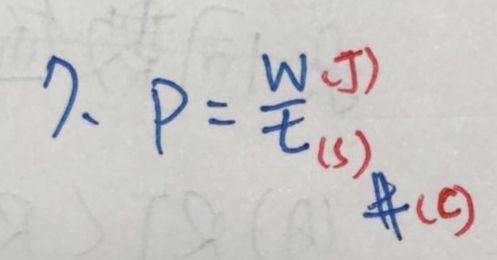 7、P = W(J)/t(s)
#(C)